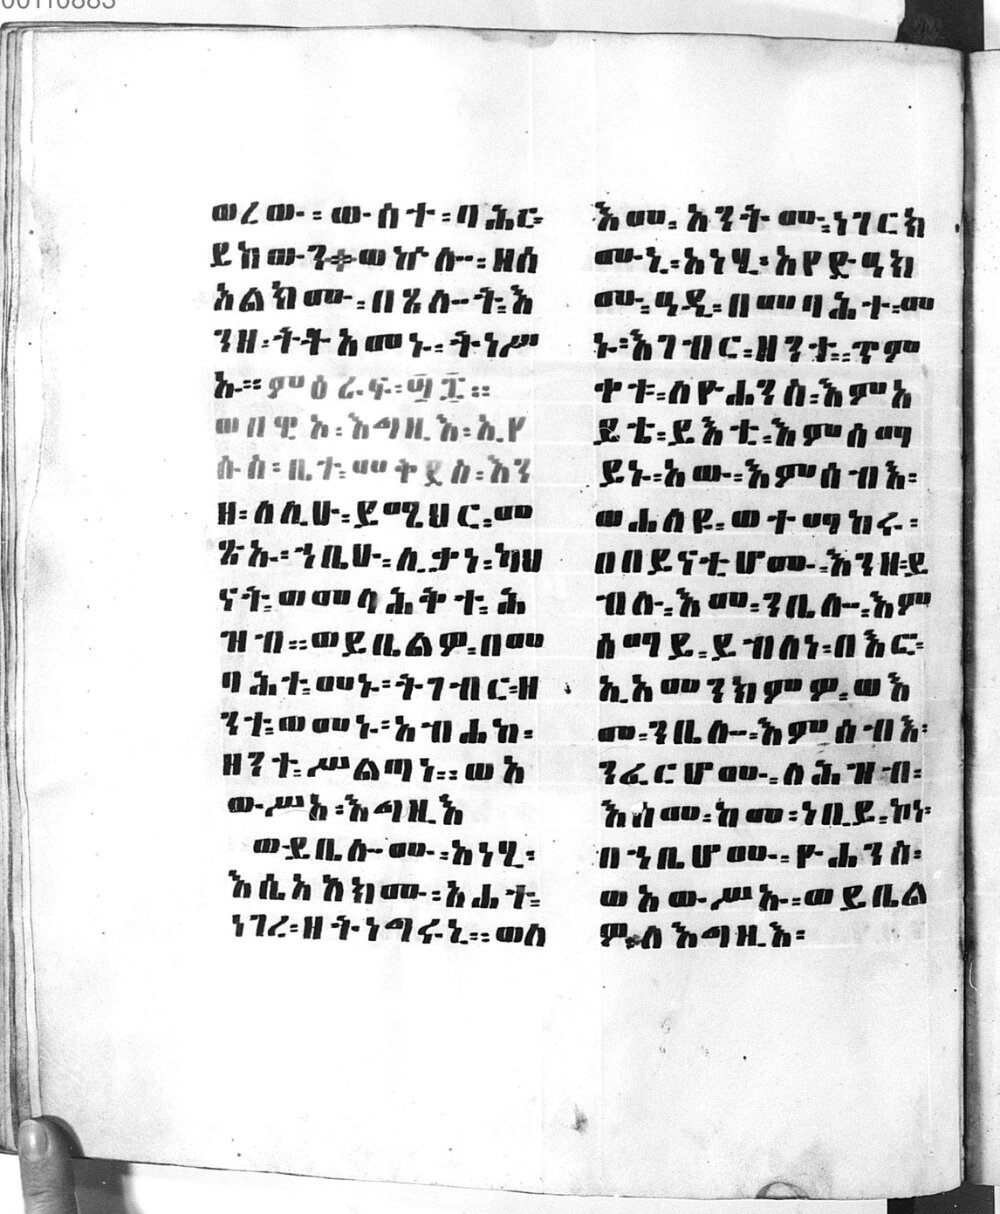 00110883
ወረው፡ ውስተ፡ ባሕር፡
ይከውን፡ ወኵሎ፡ ዘሰ
አልክሙ፡ በጸሎት፡ እ
ንዘ፡ ትትአመኑ፡ ትነሥ
አ፡፡ ምዕራፍ፡ ፹፰፡፡
ወበዊኦ፡ እግዚእ፡ ኢየ
ሱስ፡ ቤተ፡ መቅደስ፡ እን
ዘ፡ ሰሲሁ፡ ይሜህር፡ መ
ጽኡ፡ ኀቤሁ፡ ሊቃነ፡ ካህ
ናት፡ ወመላሕቅተ፡ ሕ
ዝብ፡፡ ወይቤልዎ፡ በመ
ባሕተ፡ መኑ፡ ትገብር፡ ዘ
ንተ፡ ወመኑ፡ አብሐከ፡
ዘንተ፡ ሥልጣነ፡፡ ወአ
ውሥአ፡ እግዚእ
ወይቤሎሙ፡ አነሂ፡
እሴአለክሙ፡ አሐተ፡
ነገረ፡ ዘትነግሩኒ፡፡ ወሰ
እመ፡ አንትሙ፡ ነገርክ
ሙኒ፡ አነሂ፡ አየድዓክ
ሙ፡ ዓዲ፡ በመባሕተ፡ መ
ኑ፡ እገብር፡ ዘንተ፡፡ ጥም
ቀቱ፡ ለዮሐንስ፡ እምአ
ይቴ፡ ይእቲ፡ እምሰማ
ይኑ፡ አው፡ እምሰብእ፡
ወሐለዩ፡ ወተማከሩ፡
በበይናቲሆሙ፡ እንዘ፡ ይ
ብሉ፡ እመ፡ ንቤሎ፡ እም
ሰማይ፡ ይብለነ፡ በእፎ፡
ኢአመንክምዎ፡ ወእ
መ፡ ንቤሎ፡ እምሰብእ፡
ንፈርሆሙ፡ ለሕዝብ፡
እስመ፡ ከመ፡ ነቢይ፡ ኮነ፡
በኀቤሆሙ፡ ዮሐንስ፡
ወአውሥኡ፡ ወይቤል
ዎ፡ ለእግዚእ፡